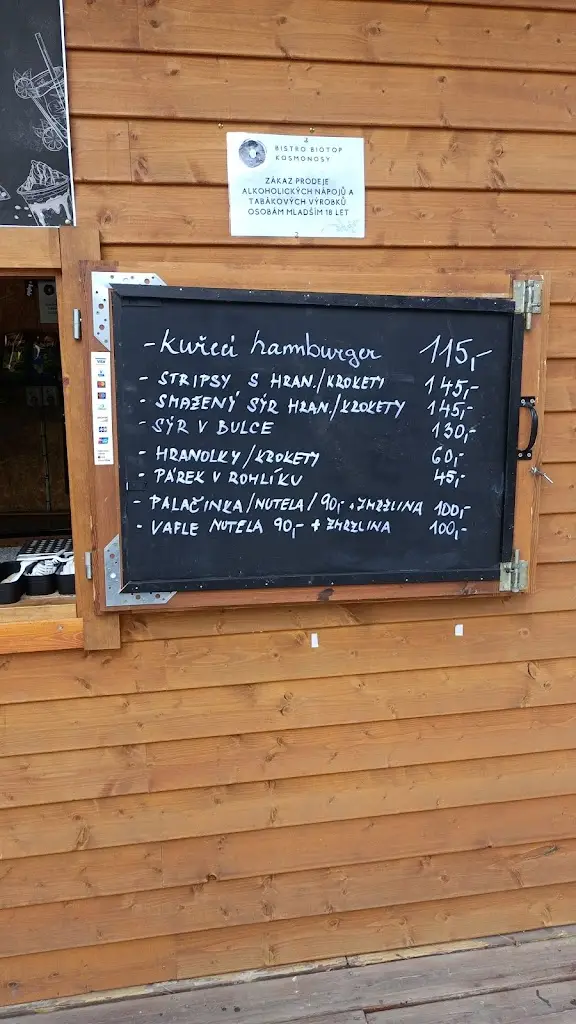 BISTRO BIOTOP
KOSMONOSY
ZÁKAZ PRODEJE
ALKOHOLICKÝCH NÁPOJŮ A
TABÁKOVÝCH VÝROBKŮ
OSOBÁM MLADŠÍM 18 LET
- Kuřecí hamburger 115,-
- STRIPSY S HRAN./KROKETY 145,-
- SMAŽENÝ SÝR HRAN./KROKETY 145,-
- SÝR V BULCE 130,-
- HRANOLKY/KROKETY 60,-
- PÁREK V ROHLÍKU 45,-
- PALAČINKA/NUTELA/90,- + ZMRZLINA 100,-
- VAFLE NUTELA 90,- + ZMRZLINA 100,-